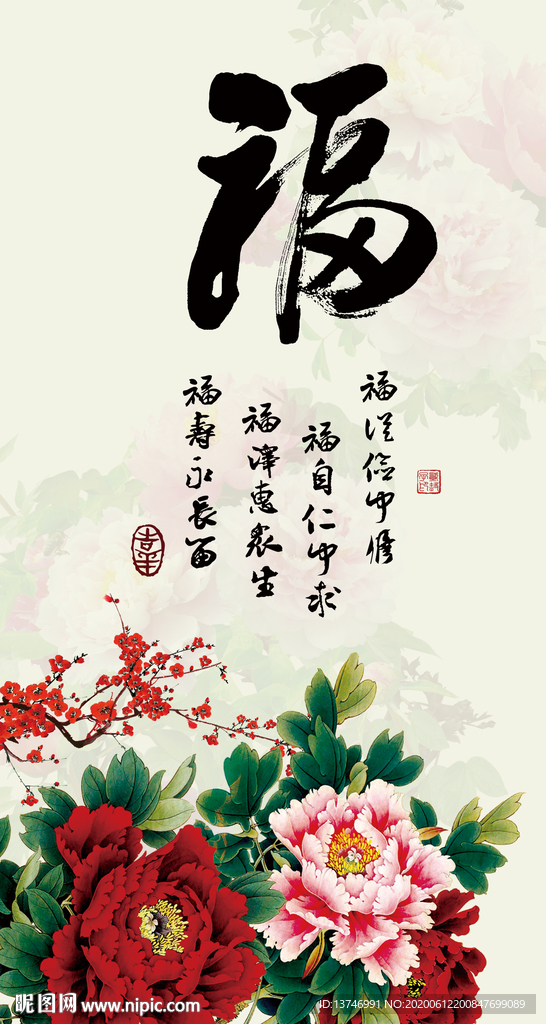 福
福從儉中獲
福自仁中求
福澤惠衆生
福壽永長留
昵图网 www.nipic.com
ID:13746991 NO:20200612200847699089